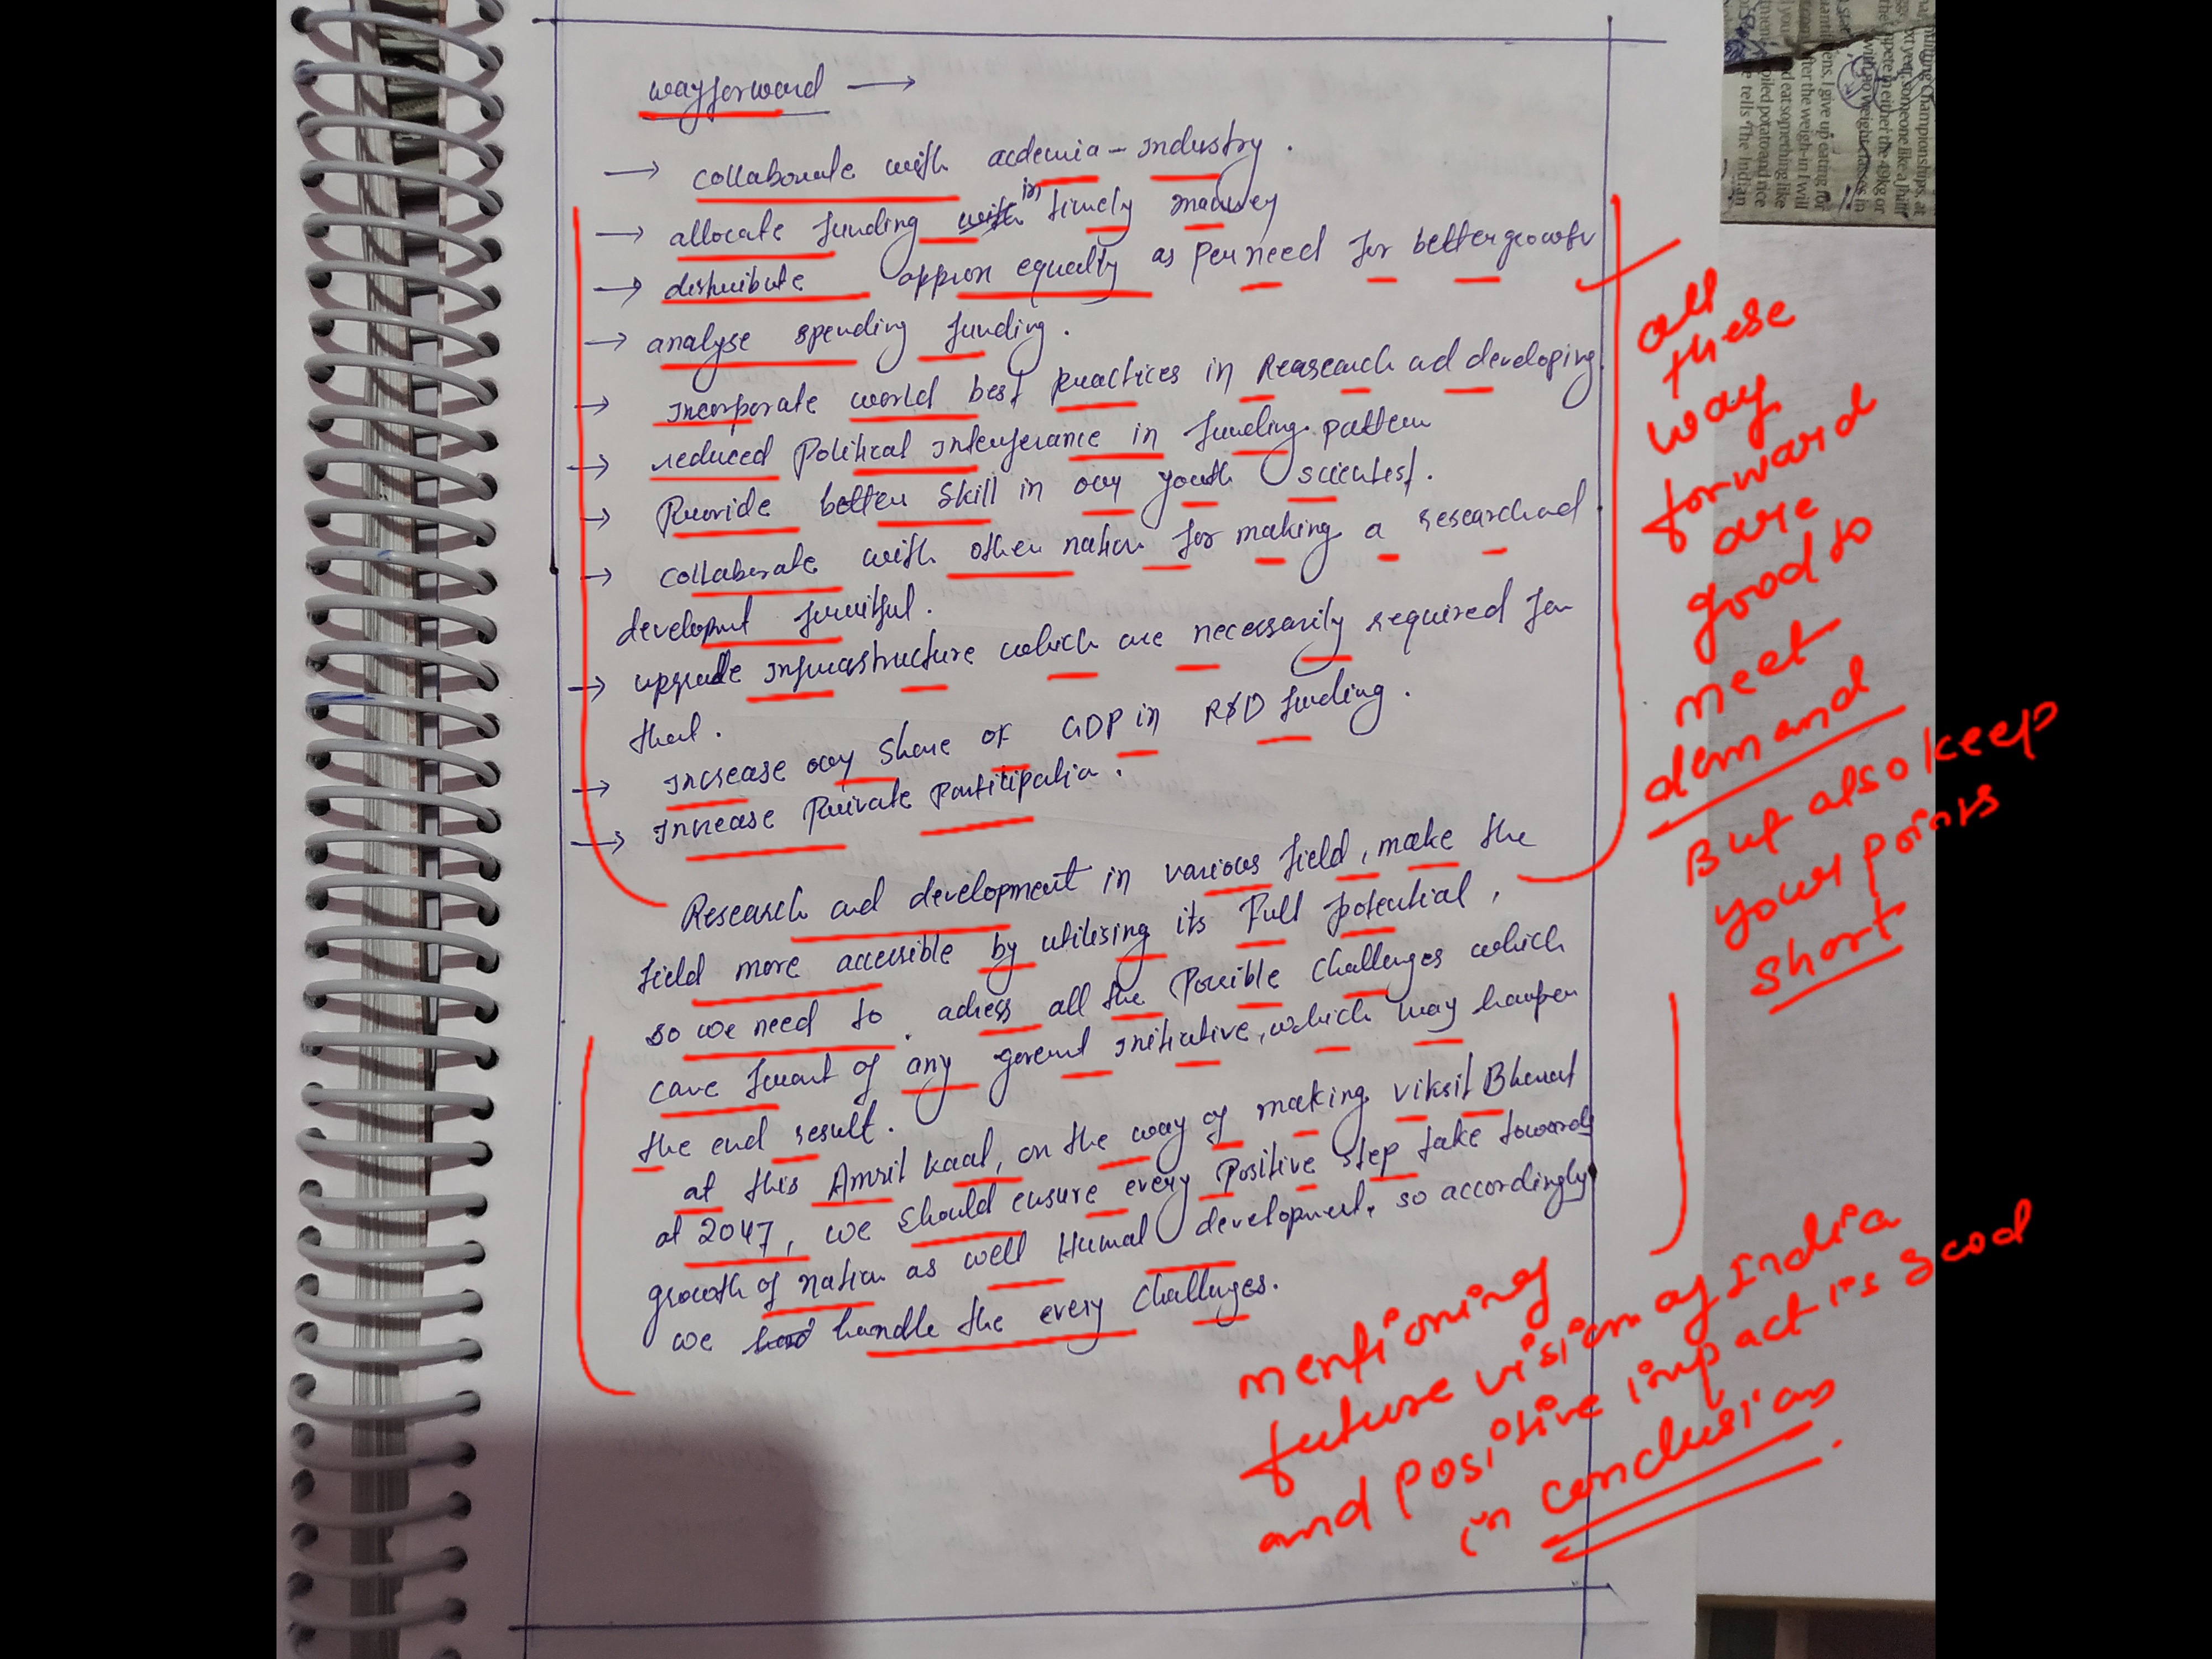 wayforward →
→ collaborate with acdemia - Industry.
→ allocate funding with in timely manney
→ dishribute approx equality as per need for better growth
→ analyse spending funding.
→ Incorporate world best practices in Reasearch ad developing
→ reduced Political Interferance in funding pattern
→ Provide better skill in ouy youth scientist.
→ collaborate with other nation for making a research ad
developmt fruitful.
→ upgrade Infrastructure which are necessarily required for
that.
→ Increase ouy share of GDP in R&D funding.
→ Increase Private Participatin.
Research and development in various field, make the
field more accessible by utilising its Full potential,
so we need to adress all the Possible challenges which
came front of any goverment Initiative, which may hamper
the end result.
at this Amrit kaal, on the way of making viksit Bharat
at 2047, we should ensure every Positive step take towards
growth of nation as well Humal development. so accordingly
we handle the every challenges.
all
these
way
forward
are
good to
meet
demand
But also keep
your points
short
mentioning
future vision of India
and positive impact is good
in conclusion